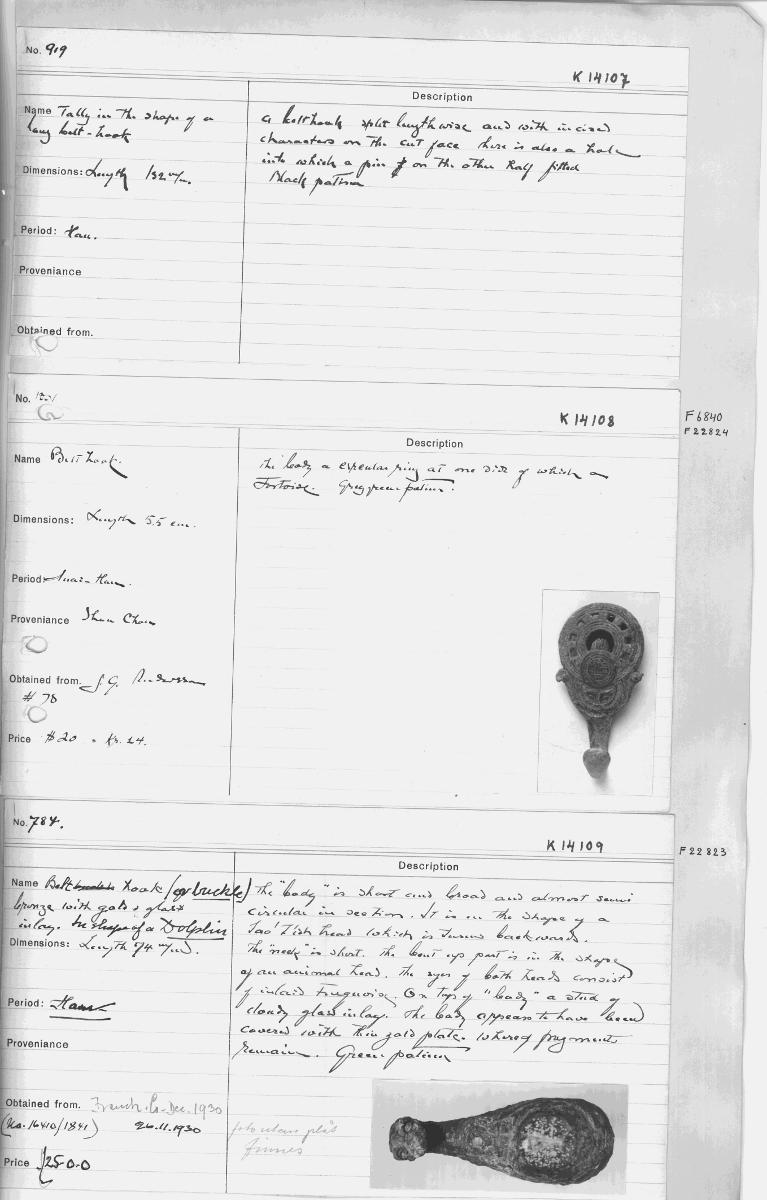 No. 919
K 14107
Description
Name Tally in the shape of a
long belt-hook
Dimensions: Length 132 m/m.
Period: Han.
Proveniance
Obtained from.
a belthook split lengthwise and with incised
characters on the cut face there is also a hole
into which a pin on the other half fitted
Black patina
No.
K 14108
F 6840
F 22824
Description
Name Belt hook.
Dimensions: Length 5.5 cm.
Period Huai-Han.
Proveniance Shou Chou
Obtained from. J.G. Andersson
# 78
Price $ 20 = Kr. 24.
The body a circular ring at one side of which a
Tortoise. Greygreen patina.
No. 784.
K 14109
F 22823
Description
Name Belt hook (or buckle)
bronze with gold & glass
inlay. In shape of a Dolphin
Dimensions: Length 74 m/m.
Period: Han
Proveniance
Obtained from. Franck Co-Dec. 1930
(No. 16410/1841) 26.11.1930
Price £25-0-0
The "body" is short and broad and almost semi
circular in section. It is in the shape of a
Tao Tieh head which is turned backwards.
The "neck" is short. The bent up part is in the shape
of an animal head. The eyes of both heads consist
of inlaid Turquoise. On top of "body" a stud of
cloudy glass inlay. The body appears to have been
covered with thin gold plate. whereof fragments
remain. Green patina
foto utan plåt
finnes